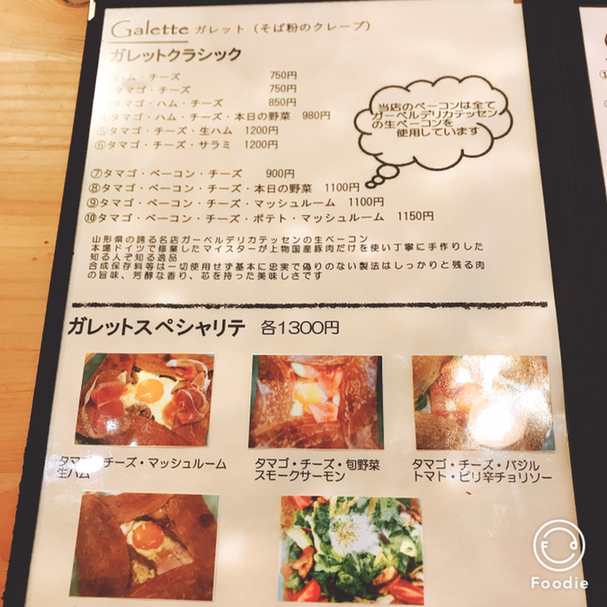 Galette ガレット（そば粉のクレープ）
ガレットクラシック
ハム・チーズ 750円
タマゴ・チーズ 750円
タマゴ・ハム・チーズ 850円
タマゴ・ハム・チーズ・本日の野菜 980円
⑤タマゴ・チーズ・生ハム 1200円
⑥タマゴ・チーズ・サラミ 1200円
当店のベーコンは全て
ガーベルデリカテッセン
の生ベーコンを
使用しています
⑦タマゴ・ベーコン・チーズ 900円
⑧タマゴ・ベーコン・チーズ・本日の野菜 1100円
⑨タマゴ・ベーコン・チーズ・マッシュルーム 1100円
⑩タマゴ・ベーコン・チーズ・ポテト・マッシュルーム 1150円
山形県の誇る名店ガーベルデリカテッセンの生ベーコン
本場ドイツで修業したマイスターが上物国産豚肉だけを使い丁寧に手作りした
知る人ぞ知る逸品
合成保存料等は一切使用せず基本に忠実で偽りのない製法はしっかりと残る肉
の旨味、芳醇な香り、芯を持った美味しさです
ガレットスペシャリテ 各1300円
タマゴ・チーズ・マッシュルーム
生ハム
タマゴ・チーズ・旬野菜
スモークサーモン
タマゴ・チーズ・バジル
トマト・ピリ辛チョリソー
Foodie